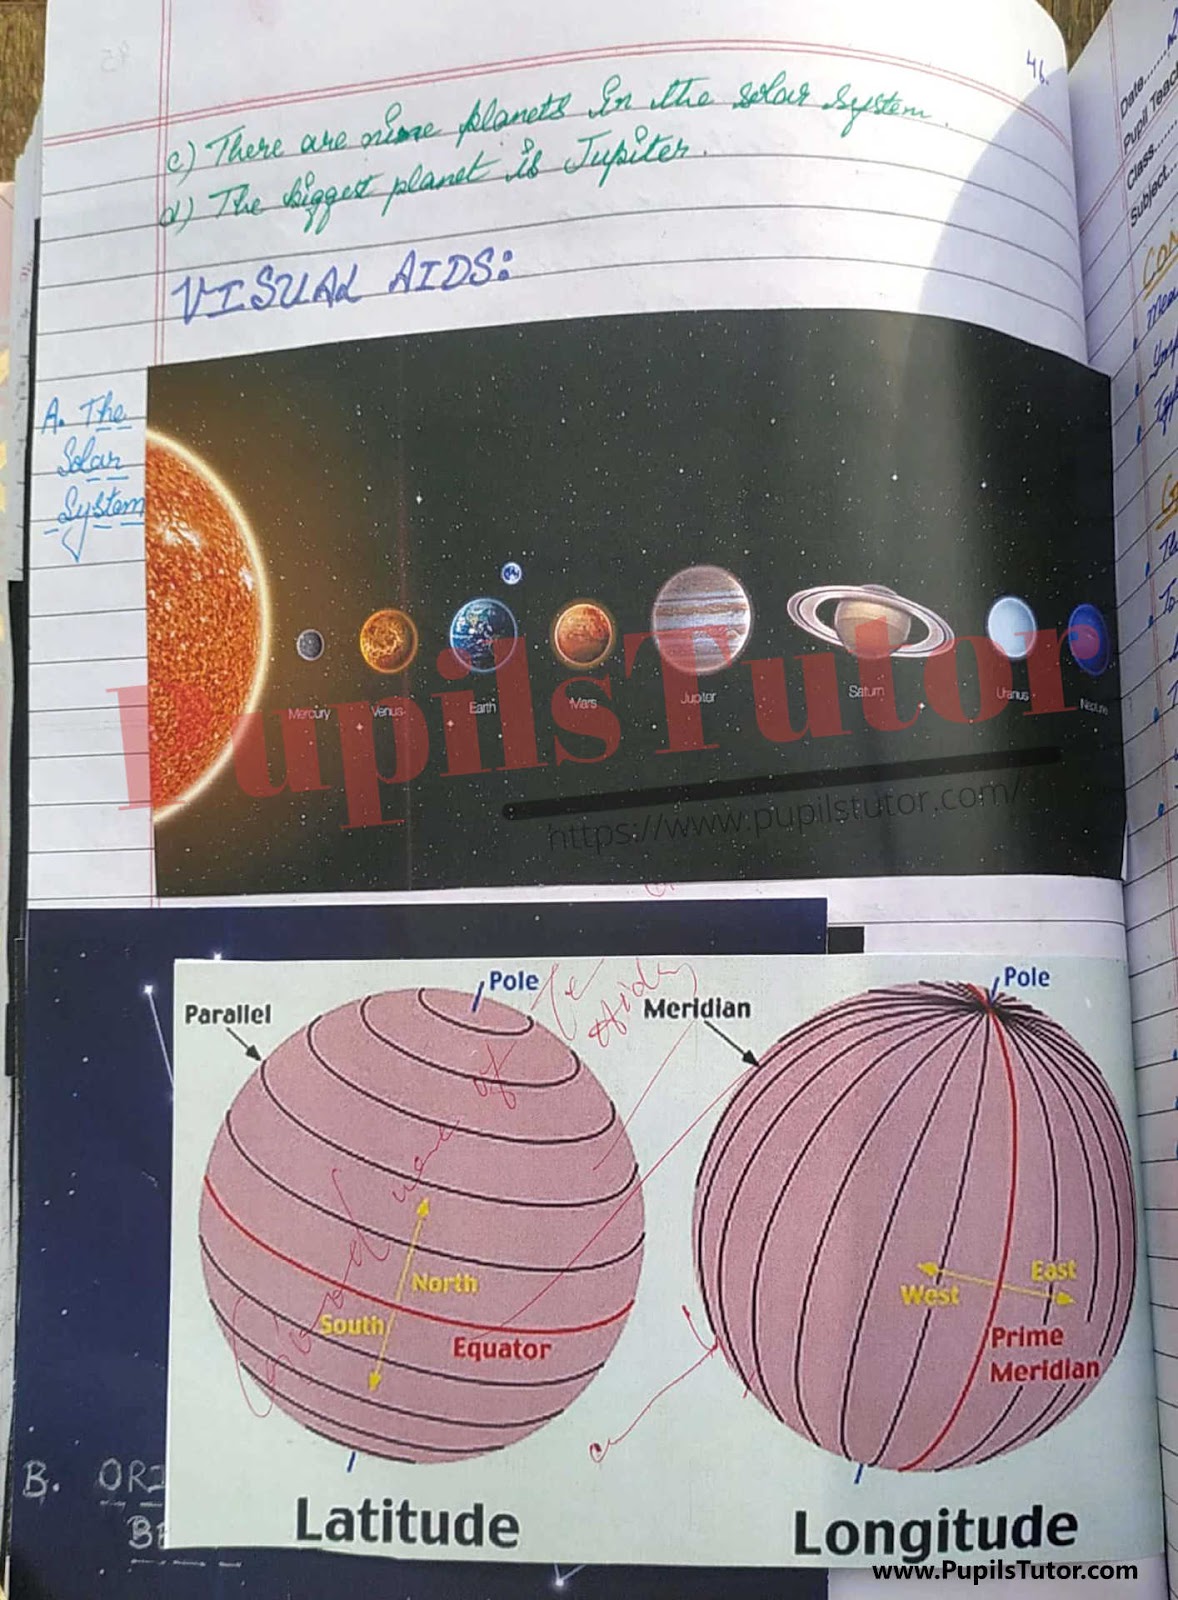 46.
c) There are nine planets in the solar system.
d) The biggest planet is Jupiter.
VISUAL AIDS:
A. The
Solar
System
Mercury
Venus
Earth
Mars
Jupiter
Saturn
Uranus
Neptune
PupilsTutor
https://www.pupilstutor.com/
Pole
Parallel
North
South
Equator
Latitude
Meridian
Pole
West
East
Prime
Meridian
Longitude
Good use of
B. ORI
BE
www.PupilsTutor.com
Date
Pupil Teac
Class
Subject